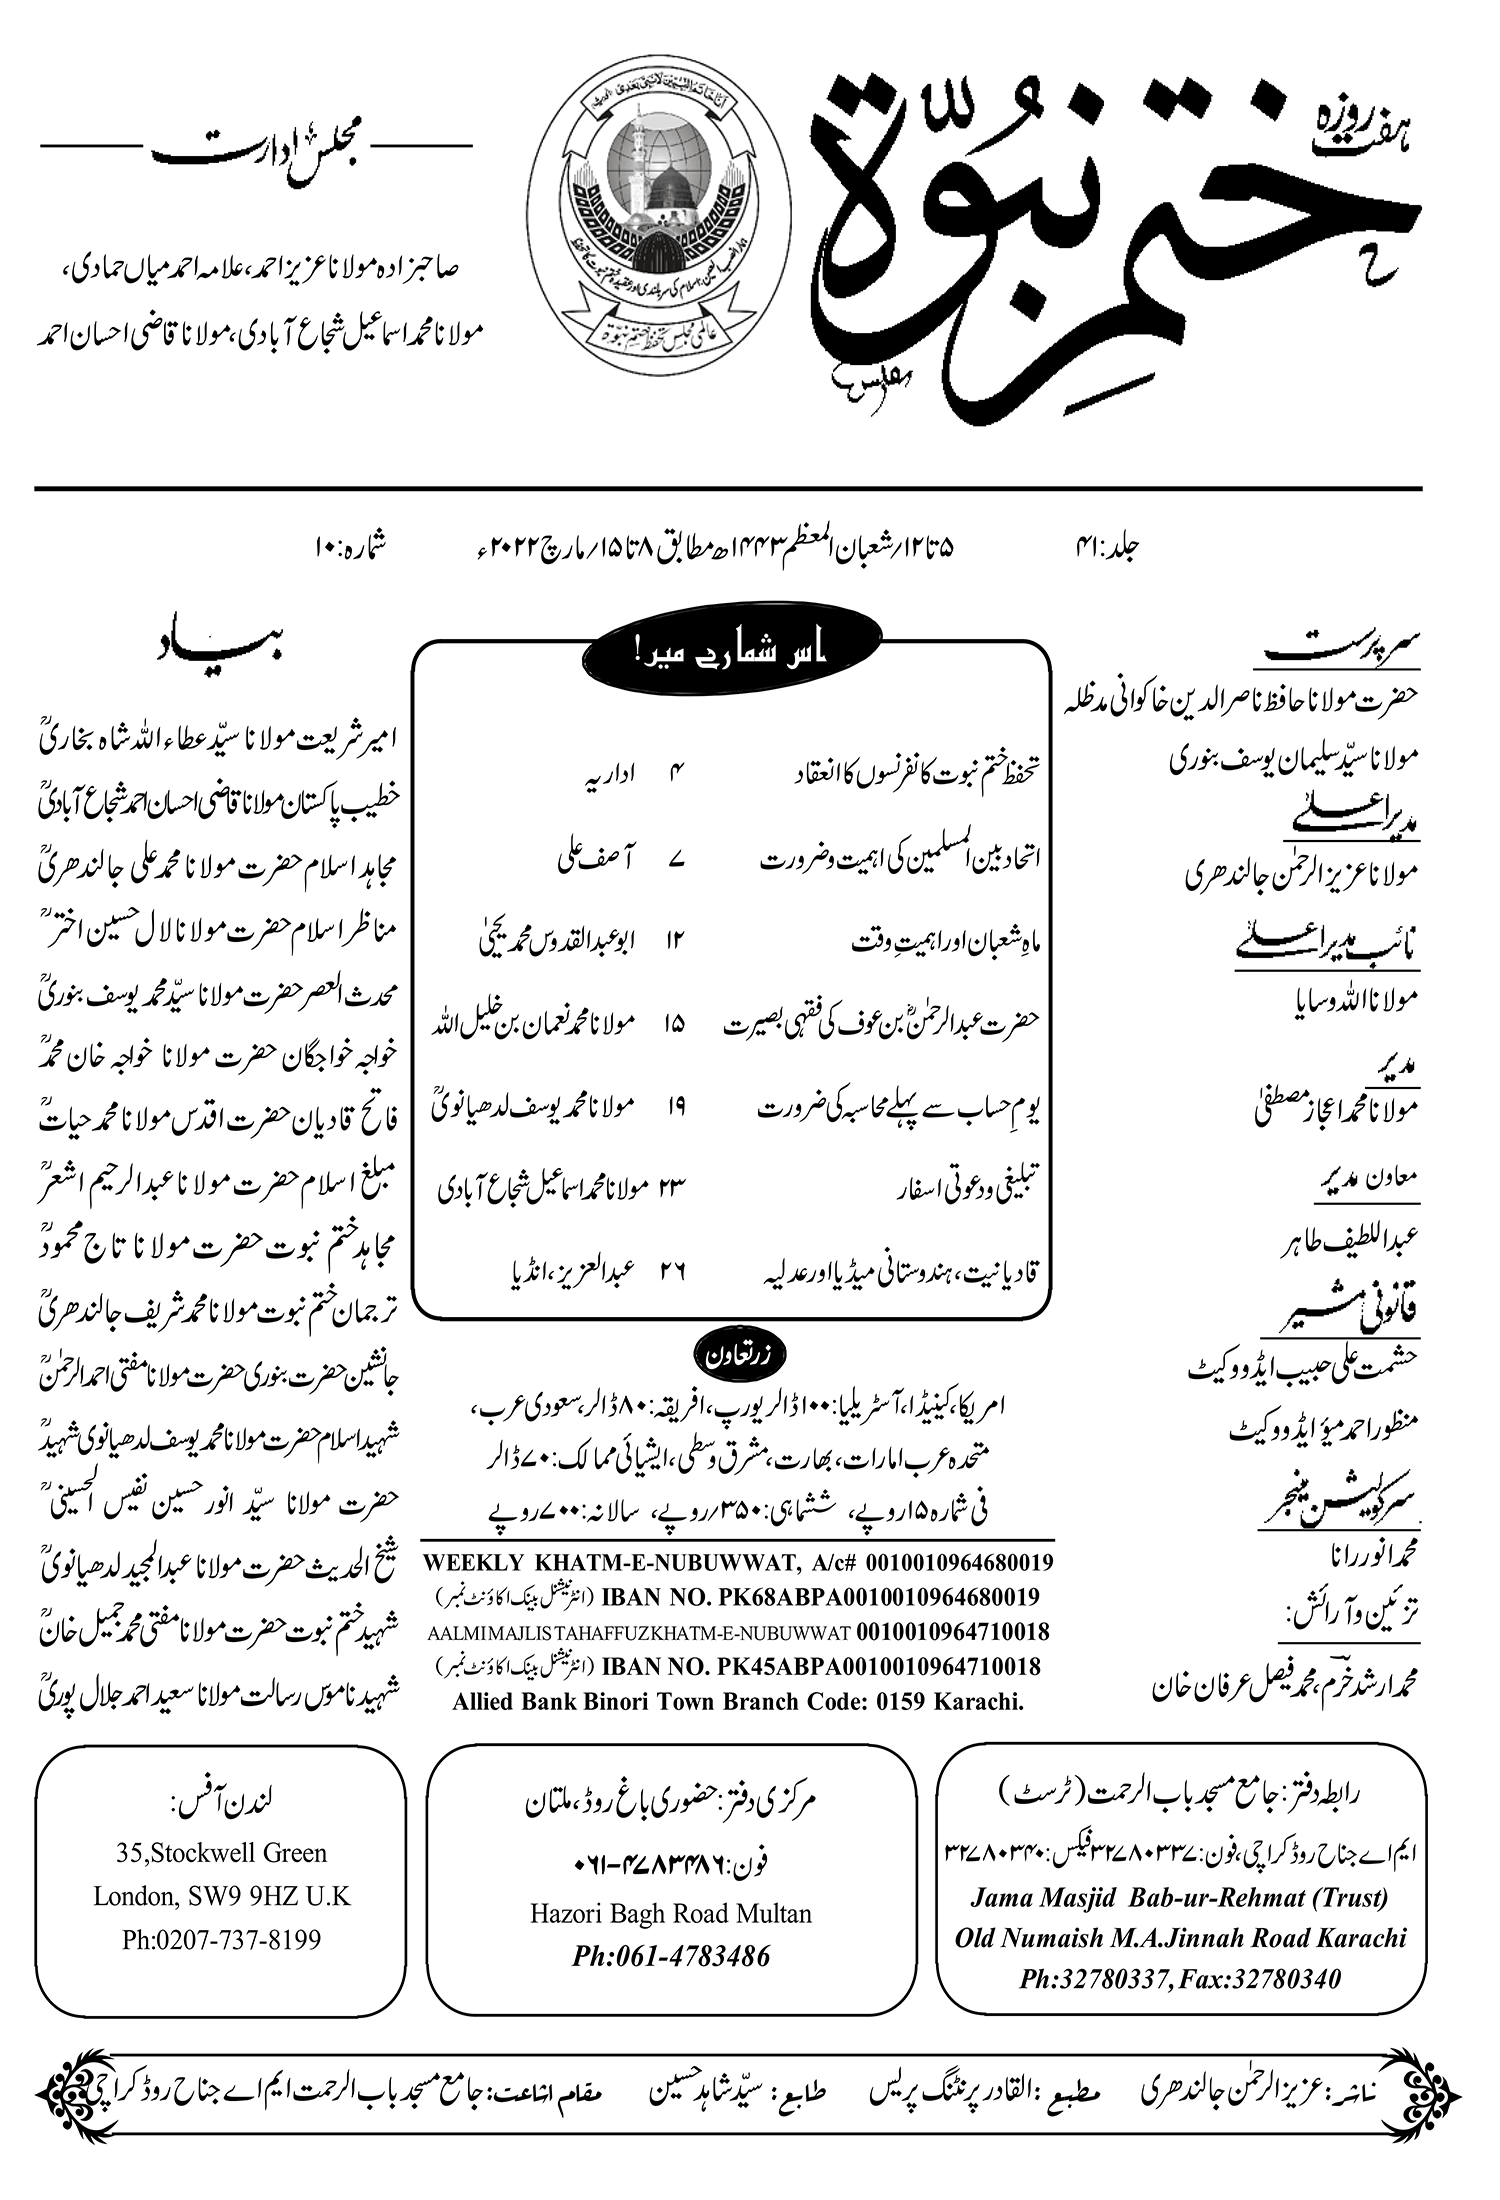 ہفت روزہ
ختم نبوّۃ
مجلس ادارت
صاحبزادہ مولانا عزیز احمد، علامہ احمد میاں حمادی،
مولانا محمد اسماعیل شجاع آبادی، مولانا قاضی احسان احمد
عالمی مجلس تحفظ ختم نبوّۃ
جلد:۴۱
۵ تا ۱۲/شعبان المعظم ۱۴۴۳ھ مطابق ۸ تا ۱۵/مارچ ۲۰۲۲ء
شمارہ:۱۰
سرپرست
حضرت مولانا حافظ ناصر الدین خاکوانی مدظلہ
مولانا سیّد سلیمان یوسف بنوری
مدیر اعلےٰ
مولانا عزیز الرحمٰن جالندھری
نائب مدیر اعلےٰ
مولانا اللہ وسایا
مدیر
مولانا محمد اعجاز مصطفیٰ
معاون مدیر
عبداللطیف طاہر
قانونی مشیر
حشمت علی حبیب ایڈووکیٹ
منظور احمد میؤ ایڈووکیٹ
سرکولیشن منیجر
محمد انور رانا
تزئین و آرائش:
محمد ارشد خرم، محمد فیصل عرفان خان
اس شمارے میں!
تحفظ ختم نبوت کانفرنسوں کا انعقاد ۴ اداریہ
اتحاد بین المسلمین کی اہمیت و ضرورت ۷ آصف علی
ماہِ شعبان اور اہمیتِ وقت ۱۲ ابو عبدالقدوس محمد یحییٰ
حضرت عبدالرحمٰنؓ بن عوف کی فقہی بصیرت ۱۵ مولانا محمد نعمان بن خلیل اللہ
یومِ حساب سے پہلے محاسبہ کی ضرورت ۱۹ مولانا محمد یوسف لدھیانویؒ
تبلیغی و دعوتی اسفار ۲۳ مولانا محمد اسماعیل شجاع آبادی
قادیانیت، ہندوستانی میڈیا اور عدلیہ ۲۶ عبدالعزیز، انڈیا
زرتعاون
امریکا، کینیڈا، آسٹریلیا:۱۰۰ڈالر یورپ، افریقہ:۸۰ڈالر، سعودی عرب،
متحدہ عرب امارات، بھارت، مشرق وسطی، ایشیائی ممالک:۷۰ڈالر
فی شمارہ ۱۵روپے، ششماہی:۳۵۰/روپے، سالانہ:۷۰۰روپے
WEEKLY KHATM-E-NUBUWWAT, A/c# 0010010964680019
(انٹرنیشنل بینک اکاؤنٹ نمبر) IBAN NO. PK68ABPA0010010964680019
AALMI MAJLIS TAHAFFUZ KHATM-E-NUBUWWAT 0010010964710018
(انٹرنیشنل بینک اکاؤنٹ نمبر) IBAN NO. PK45ABPA0010010964710018
Allied Bank Binori Town Branch Code: 0159 Karachi.
بیاد
امیر شریعت مولانا سیّد عطاء اللہ شاہ بخاریؒ
خطیب پاکستان مولانا قاضی احسان احمد شجاع آبادیؒ
مجاہد اسلام حضرت مولانا محمد علی جالندھریؒ
مناظر اسلام حضرت مولانا لال حسین اخترؒ
محدث العصر حضرت مولانا سیّد محمد یوسف بنوریؒ
خواجہ خواجگان حضرت مولانا خواجہ خان محمدؒ
فاتح قادیان حضرت اقدس مولانا محمد حیاتؒ
مبلغ اسلام حضرت مولانا عبدالرحیم اشعرؒ
مجاہد ختم نبوت حضرت مولانا تاج محمودؒ
ترجمان ختم نبوت مولانا محمد شریف جالندھریؒ
جانشین حضرت بنوری حضرت مولانا مفتی احمد الرحمٰنؒ
شہید اسلام حضرت مولانا محمد یوسف لدھیانوی شہیدؒ
حضرت مولانا سیّد انور حسین نفیس الحسینیؒ
شیخ الحدیث حضرت مولانا عبدالمجید لدھیانویؒ
شہید ختم نبوت حضرت مولانا مفتی محمد جمیل خانؒ
شہید ناموس رسالت مولانا سعید احمد جلال پوریؒ
رابطہ دفتر: جامع مسجد باب الرحمت (ٹرسٹ)
ایم اے جناح روڈ کراچی، فون:۳۲۷۸۰۳۳۷ فیکس:۳۲۷۸۰۳۴۰
Jama Masjid Bab-ur-Rehmat (Trust)
Old Numaish M.A.Jinnah Road Karachi
Ph:32780337, Fax:32780340
مرکزی دفتر: حضوری باغ روڈ، ملتان
فون: ۰۶۱-۴۷۸۳۴۸۶
Hazori Bagh Road Multan
Ph:061-4783486
لندن آفس:
35,Stockwell Green
London, SW9 9HZ U.K
Ph:0207-737-8199
ناشر: عزیز الرحمٰن جالندھری مطبع: القادر پرنٹنگ پریس طابع: سیّد شاہد حسین مقام اشاعت: جامع مسجد باب الرحمت ایم اے جناح روڈ کراچی